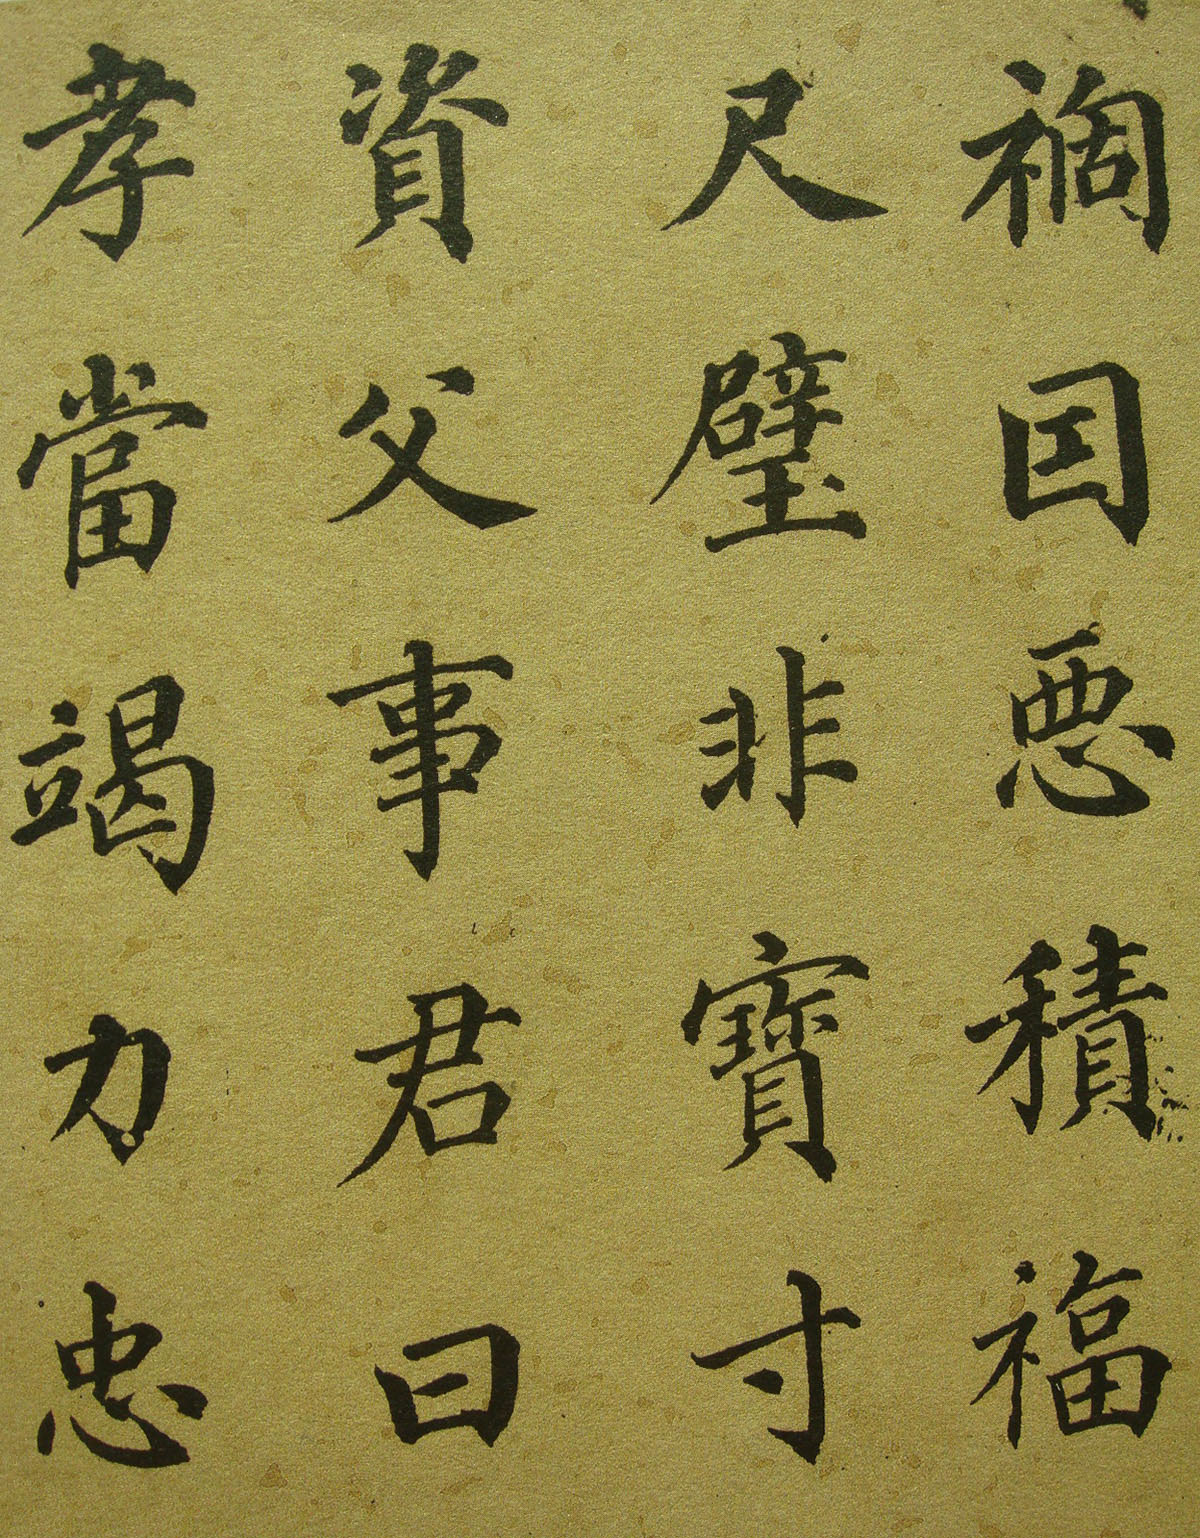 禍因悪積福
尺璧非寳寸
資父事君曰
孝當竭力忠